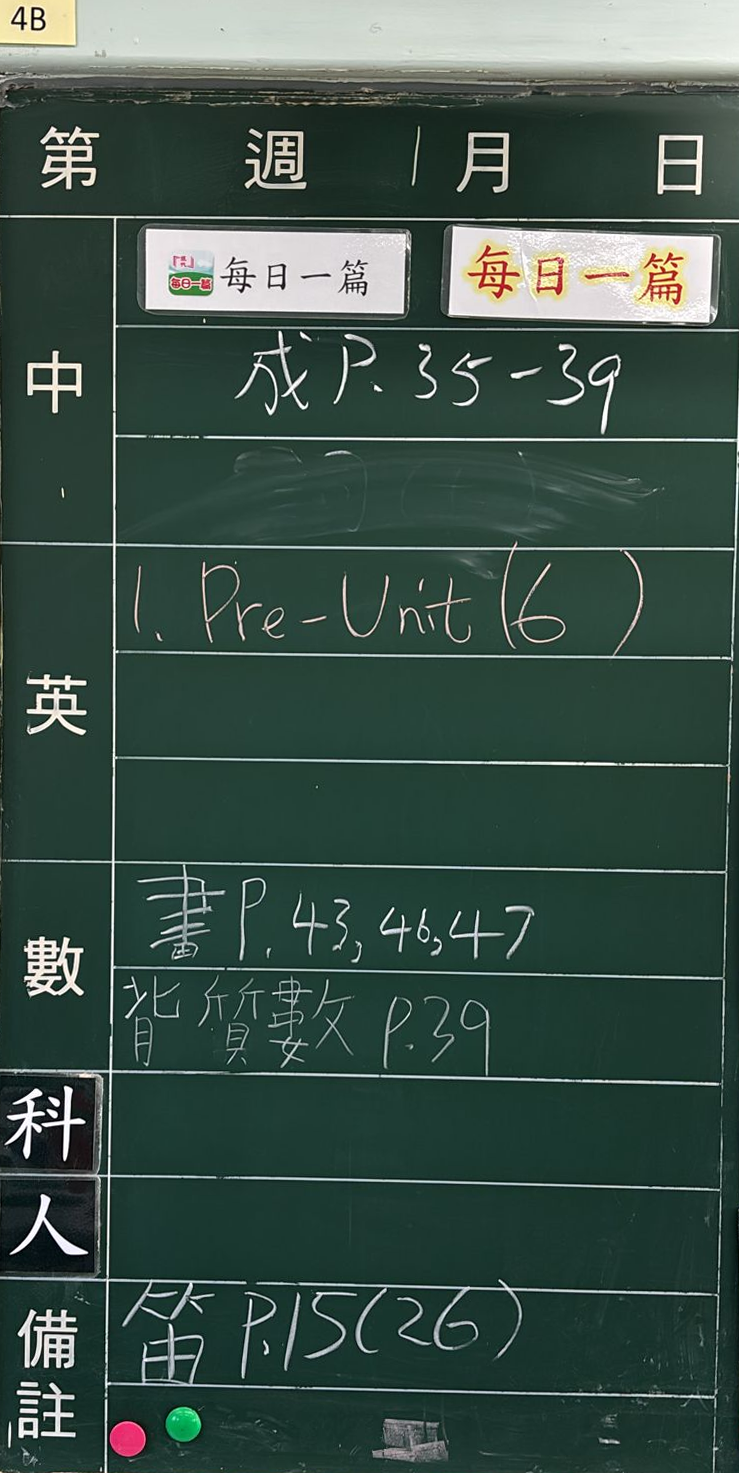 4B
第 週 1月 日
中
每日一篇 每日一篇 每日一篇
成 P. 35-39
英
1. Pre-Unit (6 )
數
書 P. 43, 46, 47
背質數 P.39
科
人
備註
笛 P.15(26)